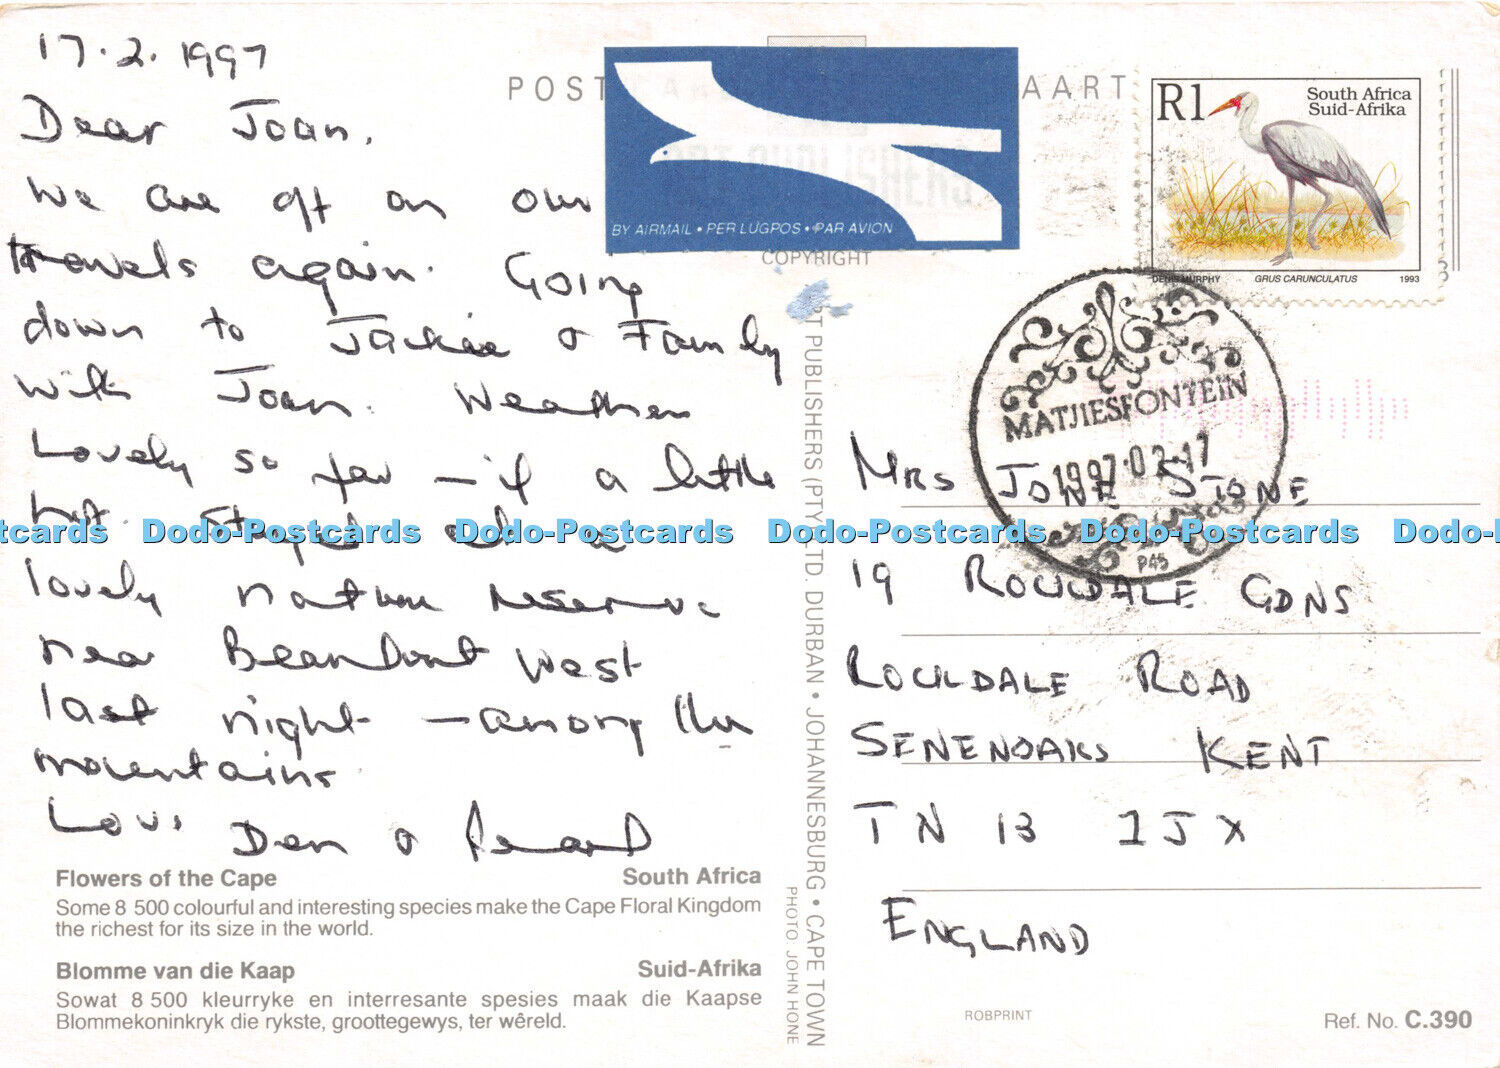 17.2.1997
Dear Joan,
We are off on our
travels again. Going
down to Jackie & Family
with Joan. Weather
Lovely so far – if a little
hot. Stayed at a
lovely nature reserve
near Beaufort West
last night – among the
mountains.
Love Den &
Flowers of the Cape South Africa
Some 8 500 colourful and interesting species make the Cape Floral Kingdom
the richest for its size in the world.
Blomme van die Kaap Suid-Afrika
Sowat 8 500 kleurryke en interresante spesies maak die Kaapse
Blommekoninkryk die rykste, groottegewys, ter wêreld.
POST AART
BY AIRMAIL • PER LUGPOS • PAR AVION
COPYRIGHT
ART PUBLISHERS (PTY) LTD. DURBAN • JOHANNESBURG • CAPE TOWN
PHOTO JOHN HONE
R1 South Africa
Suid-Afrika
DENIS MURPHY GRUS CARUNCULATUS 1993
MATJIESFONTEIN
1997-02-17
P45
MRS JOAN STONE
19 ROCKDALE GDNS
ROCKDALE ROAD
SENENOAKS KENT
TN 13 1JX
ENGLAND
ROBPRINT
Ref. No. C.390
Dodo-Postcards Dodo-Postcards Dodo-Postcards Dodo-Postcards Dodo-Postcards